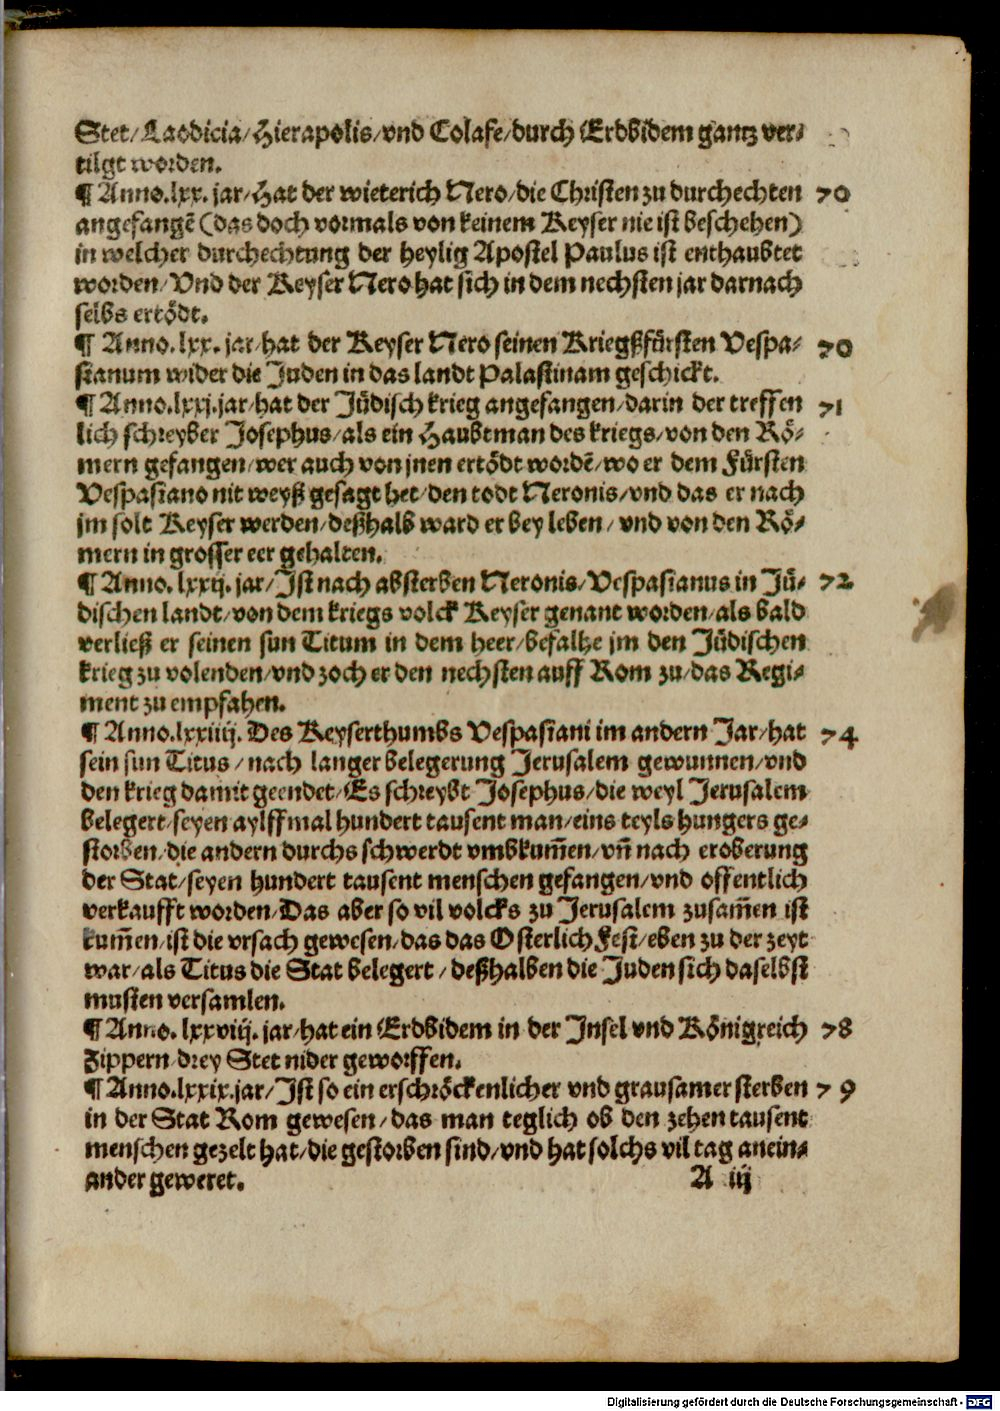 Stet/ Laodicia/ Hierapolis/ vnd Colase/ durch Erdbidem gantz ver⸗
tilgt worden.
¶ Anno.lxx. jar/ Hat der wieterich Nero/ die Christen zu durchechten 70
angefangē (das doch vormals von keinem Keyser nie ist beschehen)
in welcher durchechtung der heylig Apostel Paulus ist enthaubtet
worden/ Vnd der Keyser Nero hat sich in dem nechsten jar darnach
selbs ertödt.
¶ Anno.lxx. jar/ hat der Keyser Nero seinen Kriegßfürsten Vespa⸗ 70
sianum wider die Juden in das landt Palastinam geschickt.
¶ Anno.lxxj.jar/ hat der Jüdisch krieg angefangen/ darin der treffen 71
lich schreyber Josephus/ als ein Haubtman des kriegs/ von den Rö⸗
mern gefangen/ wer auch von jnen ertödt wordē/ wo er dem Fürsten
Vespasiano nit weyß gesagt het/ den todt Neronis/ vnd das er nach
jm solt Keyser werden/ deßhalb ward er bey leben/ vnd von den Rö⸗
mern in grosser eer gehalten.
¶ Anno. lxxij. jar/ Ist nach absterben Neronis/ Vespasianus in Jü⸗ 72
dischen landt/ von dem kriegs volck Keyser genant worden/ als bald
verließ er seinen sun Titum in dem heer/ befalhe jm den Jüdischen
krieg zu volenden/ vnd zoch er den nechsten auff Rom zu/ das Regi⸗
ment zu empfahen.
¶ Anno.lxxiiij. Des Keyserthumbs Vespasiani im andern Jar/ hat 74
sein sun Titus/ nach langer belegerung Jerusalem gewunnen/ vnd
den krieg damit geendet/ Es schreybt Josephus/ die weyl Jerusalem
belegert/ seyen aylffmal hundert tausent man/ eins teyls hungers ge⸗
storben/ die andern durchs schwerdt vmbkum̄en/ vn̄ nach eroberung
der Stat/ seyen hundert tausent menschen gefangen/ vnd offentlich
verkaufft worden/ Das aber so vil volcks zu Jerusalem zusam̄en ist
kum̄en/ ist die vrsach gewesen/ das das Osterlich Fest/ eben zu der zeyt
war/ als Titus die Stat belegert/ deßhalben die Juden sich daselbst
musten versamlen.
¶ Anno. lxxviij. jar/ hat ein Erdbidem in der Insel vnd Königreich 78
Zippern drey Stet nider geworffen.
¶ Anno.lxxix.jar/ Ist so ein erschröckenlicher vnd grausamer sterben 79
in der Stat Rom gewesen/ das man teglich ob den zehen tausent
menschen gezelt hat/ die gestorben sind/ vnd hat solchs vil tag anein⸗
ander geweret.
A iij
Digitalisierung gefördert durch die Deutsche Forschungsgemeinschaft - DFG